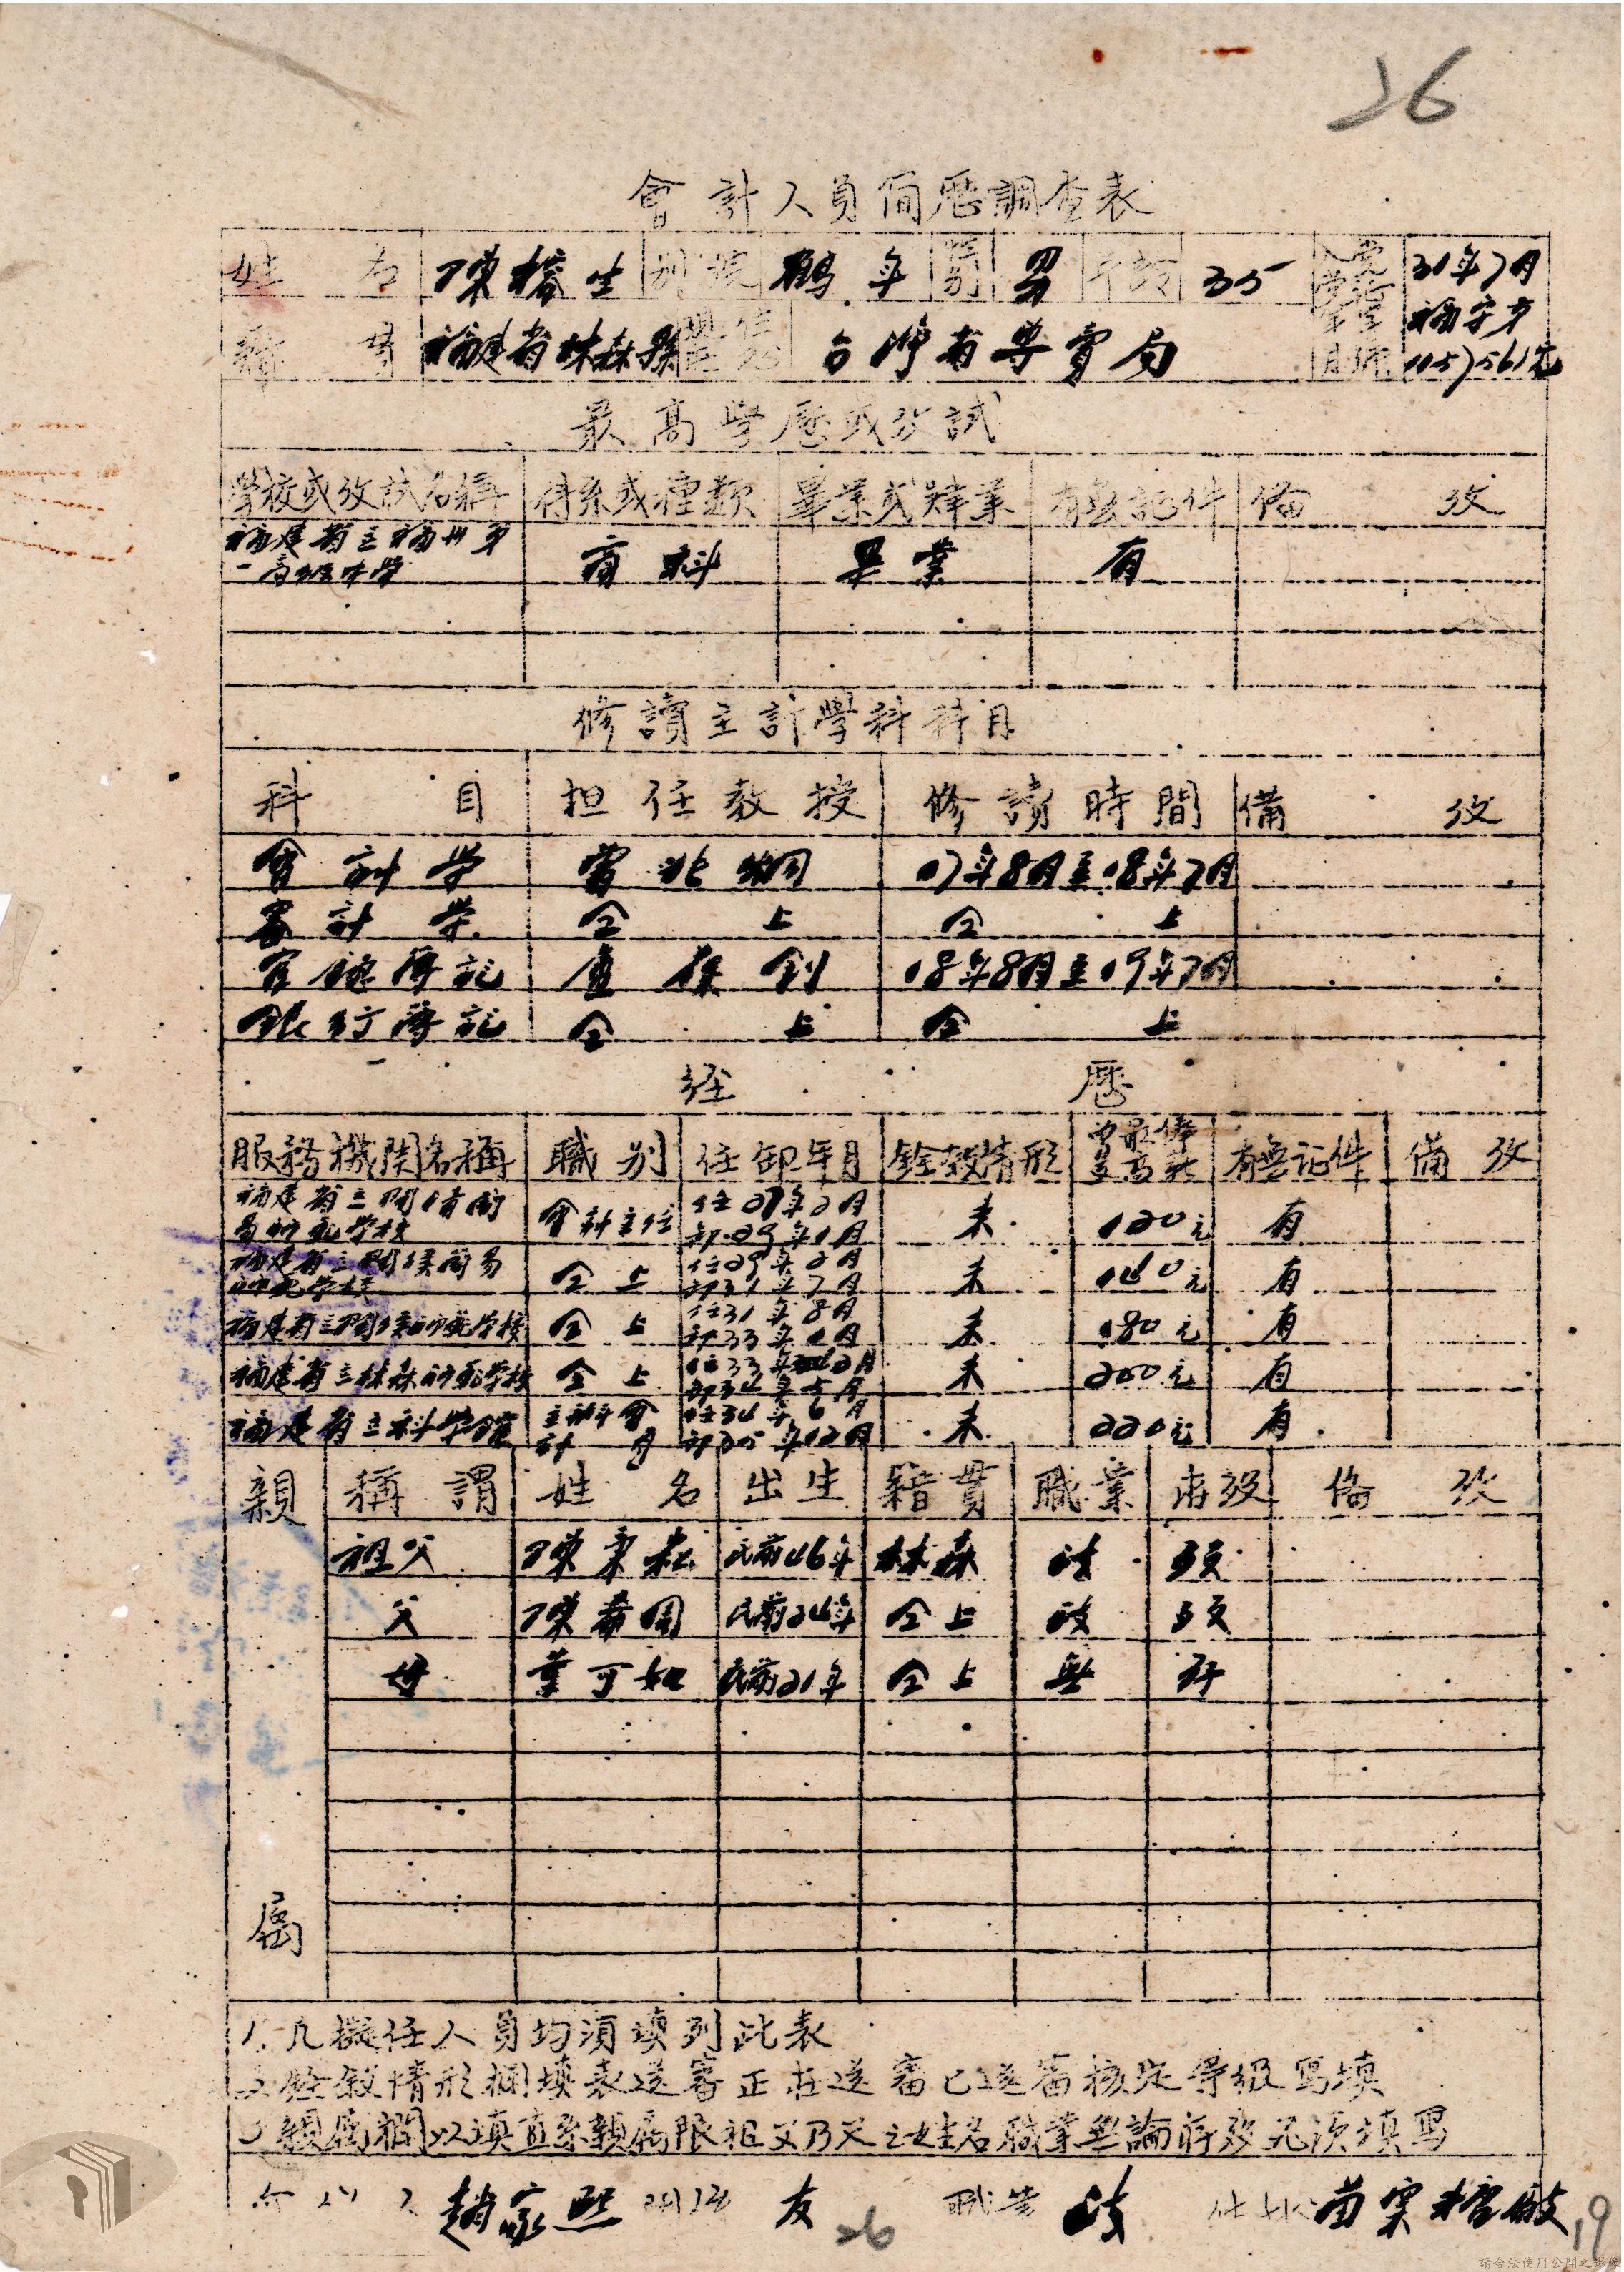 26
會計人員簡歷調查表
姓名 陳榕生 別號 鶴年 性別 男 年齡 35 31年7月
籍貫 福建省林森縣 台灣省專賣局 福字第
1057561號
最高學歷或攷試
學校或攷試名稱 科系或種類 畢業或肄業 有無証件 備攷
福建省立福州第
一高級中學 商科 畢業 有
修讀主計學科科目
科目 担任教授 修讀時間 備攷
會計學 17年8月至18年7月
審計學 仝上 仝上
官廳簿記 18年8月至19年7月
銀行簿記 仝上 仝上
經歷
服務機関名稱 職別 任卸年月 銓敘情形 有無証件 備攷
福建省立閩清簡
易師範學校 會計主任 任27年2月
卸29年1月 未 120元 有
福建省立閩侯簡易
師範學校 仝上 任29年2月
卸31年7月 未 160元 有
福建省立閩侯師範學校 仝上 任31年8月
卸33年1月 未 180元 有
福建省立林森師範學校 仝上 任33年2月
卸34年5月 未 200元 有
福建省立科學館 主辦會
計員 任34年6月
卸35年12月 未 220元 有
親屬 稱謂 姓名 出生 籍貫 職業 存歿 備攷
祖父 陳秉松 民前46年 林森 政 歿
父 陳希周 民前24年 仝上 政 歿
母 葉可如 民前21年 仝上 無 存
1.凡擬任人員均須填列此表
2.銓敘情形欄填未送審正在送審已送審核定等級寫填
3.親屬欄以填直系親屬限祖父乃至之姓名職業無論存歿凡須填寫
介紹人 趙家熙 関係 友 職業 政 住址 苗栗糖廠
26
19
請合法使用公開之影像